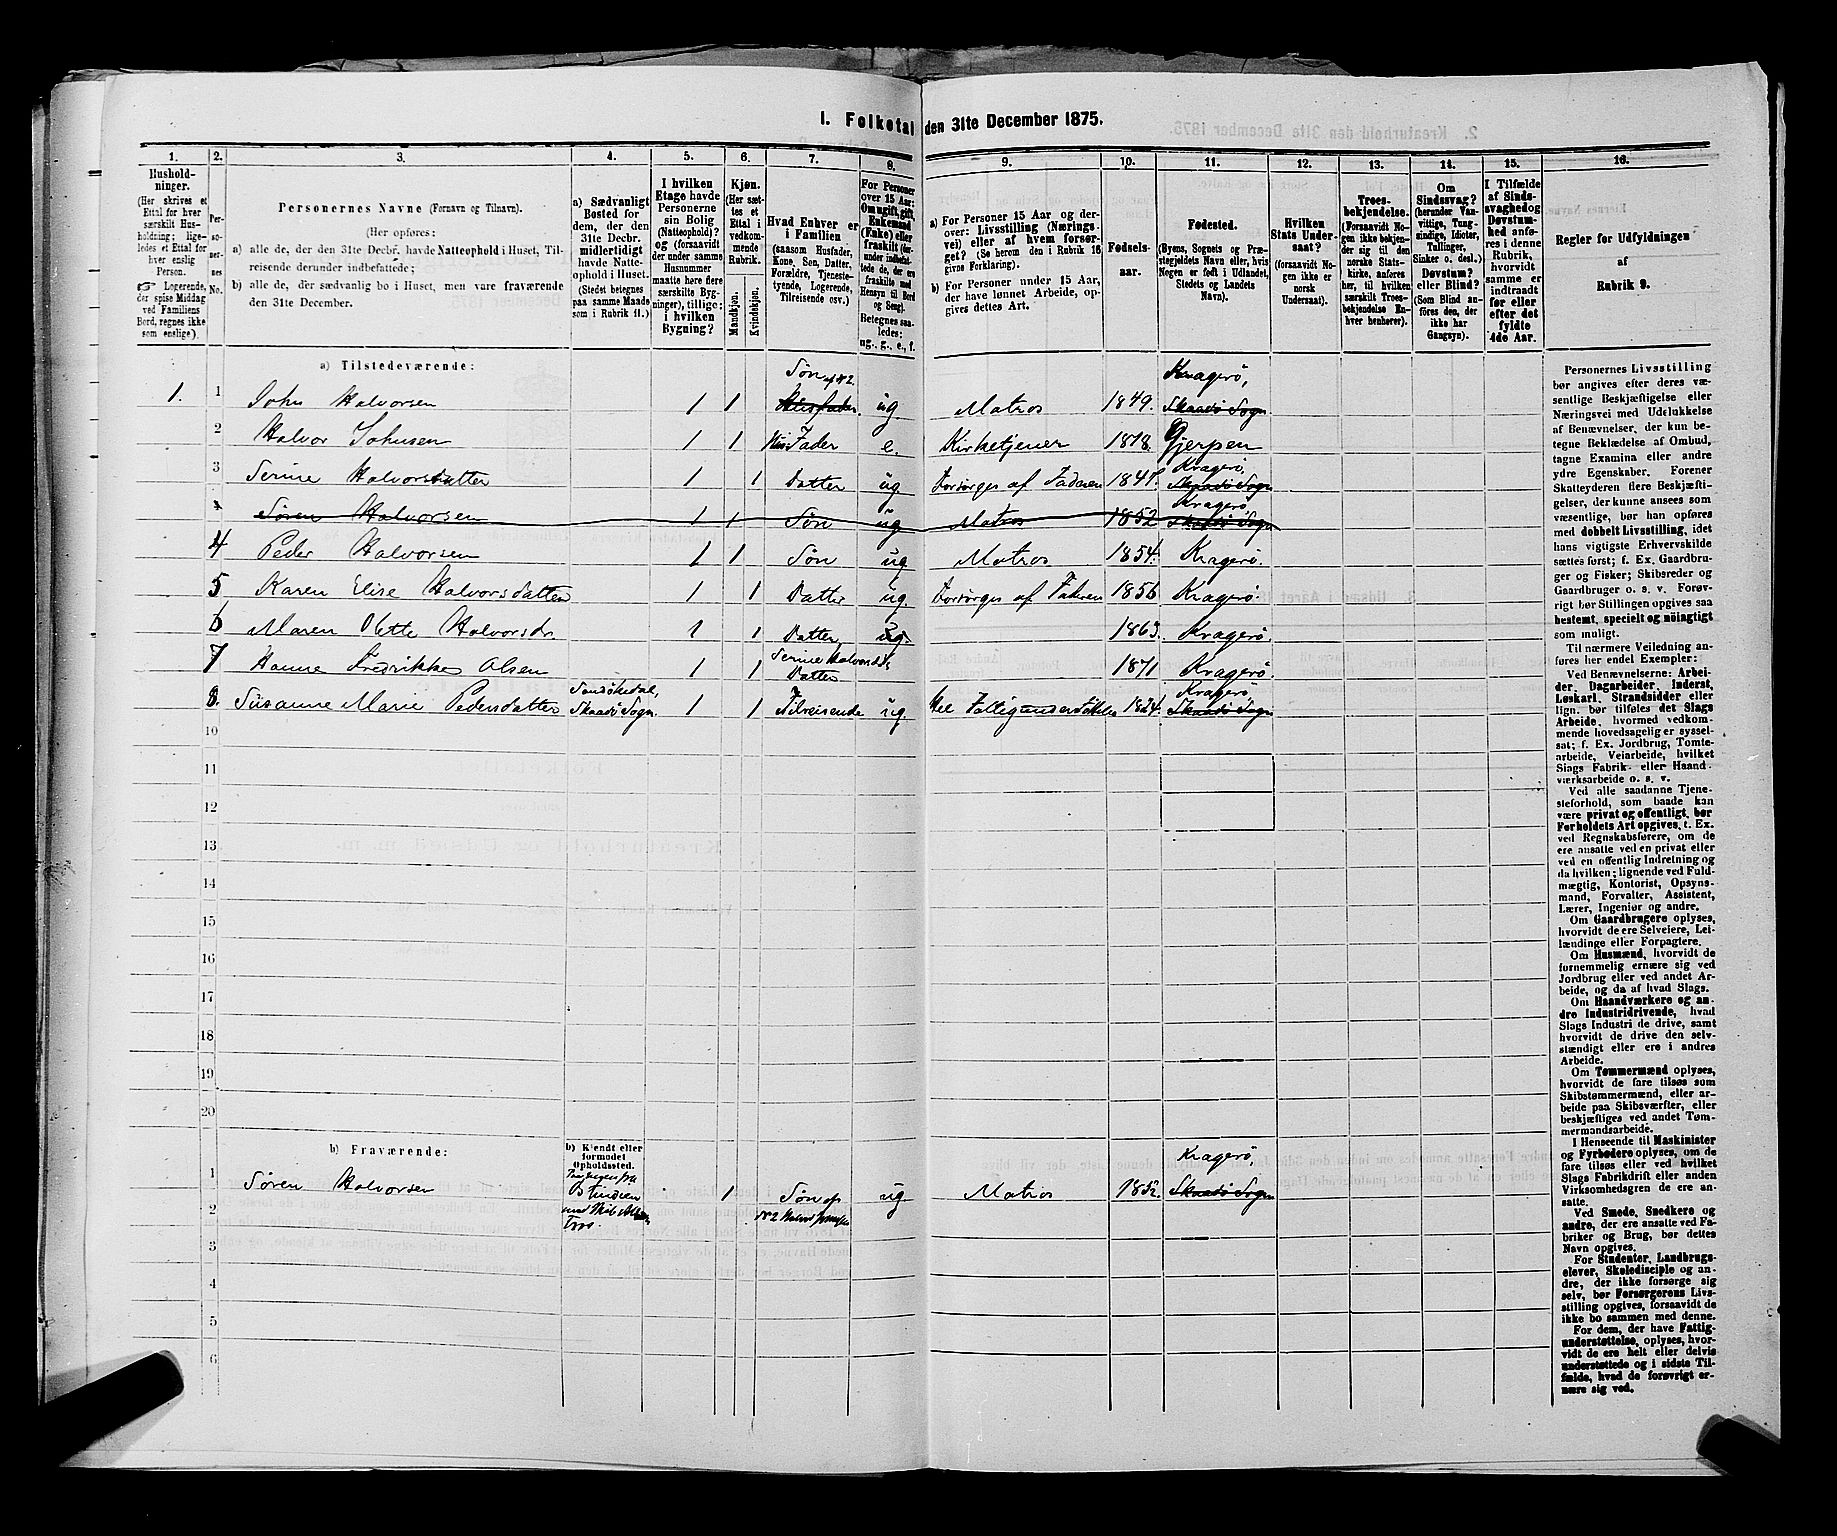 1. Folketal den 31te December 1875.
1. 2. 3. 4. 5. 6. 7. 8. 9. 10. 11. 12. 13. 14. 15. 16.
Husholdninger. (Her skrives et Ettal for hver særskilt Husholdning; ligeledes et Ettal for hver enslig Person. ☞ Logerende, der spise Middag ved Familiens Bord, regnes ikke som enslige).
Personernes No.
Personernes Navne (Fornavn og Tilnavn).
(Her opføres:
a) alle de, der den 31te Decbr. havde Natteophold i Huset, Tilreisende derunder indbefattede;
b) alle de, der sædvanlig bo i Huset, men vare fraværende den 31te December.
a) Sædvanligt Bosted for dem, der den 31te Decbr. midlertidigt havde Natteophold i Huset. (Stedet betegnes paa samme Maade som i Rubrik 11.)
I hvilken Etage havde Personerne sin Bolig (Natteophold)? og (forsaavidt der under samme Husnummer maatte høre flere særskilte Bygninger), tillige: i hvilken Bygning?
Kjøn. (Her sættes et Ettal i vedkommende Rubrik.
Mandkjøn. Kvindekjøn.
Hvad Enhver er i Familien (saasom Husfader, Kone, Søn, Datter, Forældre, Tjenestetyende, Logerende, Tilreisende osv.)
For Personer over 15 Aar: Om ugift, gift, Enkemand (Enke) eller fraskilt (derunder indbefattede de, der ere fraskilte med Hensyn til Bord og Seng). Betegnes saaledes: ug., g., e., f.
a) For Personer 15 Aar og derover: Livsstilling (Næringsvei) eller af hvem forsørget? (Se herom den i Rubrik 16 givne Forklaring).
b) For Personer under 15 Aar, der have lønnet Arbeide, opgives dettes Art.
Fødselsaar.
Fødested. (Byens, Sognets og Præstegjeldets Navn, eller hvis Nogen er født i Udlandet, Stedets og Landets Navn).
Hvilken Stats Undersaat? (forsaavidt Nogen ikke er norsk Undersaat).
Troesbekjendelse. (Forsaavidt Nogen ikke bekjender sig til den norske Statskirke, anføres her, til hvilken særskilt Troesbekjendelse Enhver henhører).
Om Sindssvag? (herunder Vanvittige, Tungsindige, Idioter, Tullinger, Sinker o. desl.) Døvstum? eller Blind? (Som Blind anføres den, der ikke har Gangsyn).
I Tilfælde af Sindssvaghed og Døvstumhed anføres i denne Rubrik, hvorvidt samme er indtraadt før eller efter det fyldte 4de Aar.
Regler for Udfyldningen af Rubrik 9.
a) Tilstedeværende:
1. 1 John Halvorsen 1 1 Søn af N 2. Husfader ug Matros 1849. Kragerö, Skaadö Sogn
2 Halvor Johnsen 1 1 Hus Fader e. Kirketjener 1818. Gjerpen
3 Serine Halvorsdatter 1 1 Datter ug. Forsörges af Faderen 1847. Kragerö, Skaadö Sogn
4 Sören Halvorsen 1 1 Sön ug Matros 1852 Kragerö, Skaadö Sogn
4 Peder Halvorsen 1 1 Sön ug Matros 1854. Kragerö.
5 Karen Elise Halvorsdatter 1 1 Datter ug. Forsörges af Faderen 1856 Kragerö.
6 Maren Olette Halvorsdr. 1 1 Datter ug. 1863. Kragerö.
7 Hanne Fredrikke Olsen 1 1 Serine Halvorsdrs Datter 1871 Kragerö.
8. Susanne Marie Pedersdatter Sandökedal, Skaadö Sogn. 1 1 Tilreisende ug. Kragerö, Skaadö Sogn
10
11
12
13
14
15
16
17
18
19
20
b) Fraværende:
b) Kjendt eller formodet Opholdssted.
1 Sören Halvorsen Ostindien 1 Sön af N 2 Halvor Johnsen ug Matros 1852. Kragerö, Skaadö Sogn
2
3
4
5
6
Personernes Livsstilling bør angives efter deres væsentlige Beskjæftigelse eller Næringsvei med Udelukkelse af Benævnelser, der kun betegne Beklædelse af Ombud, tagne Examina eller andre ydre Egenskaber. Forener Skatteyderen flere Beskjæftigelser, der kunne ansees som væsentlige, bør han opføres med dobbelt Livsstilling, idet hans vigtigste Erhvervskilde sættes først; f. Ex. Gaardbruger og Fisker; Skibsreder og Gaardbruger o. s. v. Forøvrigt bør Stillingen opgives saa bestemt, specielt og nöiagtigt som muligt.
Til nærmere Veiledning anføres her endel Exempler:
Ved Benævnelserne: Arbeider, Dagarbeider, Inderst, Løskarl, Strandsidder eller lign. bør tilføies det Slags Arbeide, hvormed vedkommende hovedsagelig er sysselsat; f. Ex. Jordbrug, Tomtearbeide, Veiarbeide, hvilket Slags Fabrik- eller Haandværksarbeide o. s. v.
Ved alle saadanne Tjenesteforhold, som baade kan være privat og offentligt, bør Forholdets Art opgives, t. Ex. ved Regnskabsførere, om de ere ansatte ved en privat eller ved en offentlig Indretning og da hvilken; lignende ved Fuldmægtig, Kontorist, Opsynsmand, Forvalter, Assistent, Lærer, Ingeniør og andre.
Om Gaardbrugere oplyses, hvorvidt de ere Selveiere, Leilændinge eller Forpagtere.
Om Husmænd, hvorvidt de fornemmelig ernære sig ved Jordbrug eller ved andet Arbeide, og da af hvad Slags.
Om Haandværkere og andre Industridrivende, hvad Slags Industri de drive, samt hvorvidt de drive den selvstændigt eller ere i andres Arbeide.
Om Tømmermænd oplyses, hvorvidt de fare tilsøs som Skibstømmermænd, eller arbeide paa Skibsværfter, eller beskjæftiges ved andet Tømmermandsarbeide.
I Henseende til Maskinister og Fyrbødere oplyses, om de fare tilsøs eller ved hvilket Slags Fabrikdrift eller anden Virksomhedsgren de ere ansatte.
Ved Smede, Snedkere og andre, der ere ansatte ved Fabriker og Brug, bør dettes Navn opgives.
For Studenter, Landbrugselever, Skoledisciple og andre, der ikke forsørge sig selv, bør Forsørgerens Livsstilling opgives, forsaavidt de ikke bo sammen med denne.
For dem, der have Fattigunderstøttelse, oplyses, hvorvidt de ere helt eller delvis understøttede og i sidste Tilfælde, hvad de forøvrigt ernære sig ved.